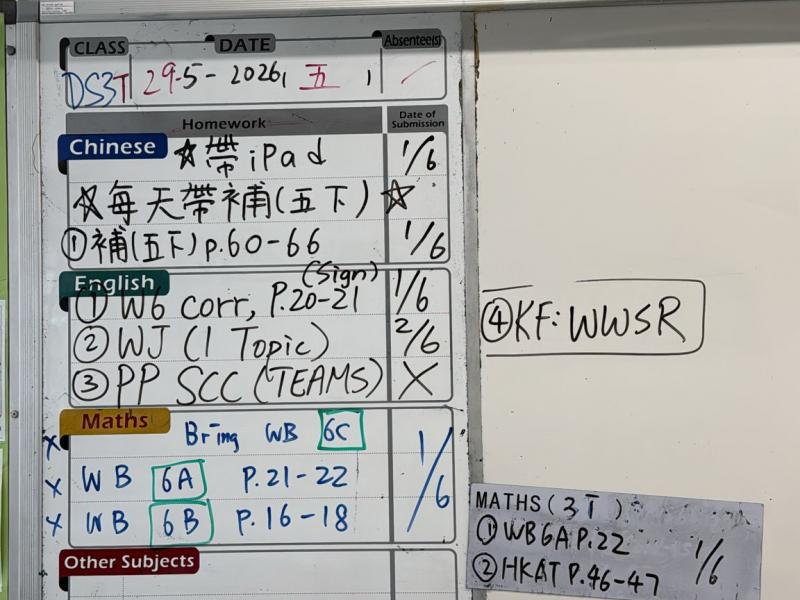 CLASS DATE Absentee(s)
DS3T 29-5-2026, 五
Homework Date of Submission
Chinese ☆帶 iPad 1/6
☆每天帶補(五下)☆
①補(五下)p.60-66 1/6
English
① W6 corr, P.20-21 (Sign) 1/6
② WJ (1 Topic) 2/6
③ PP SCC (TEAMS) X
④KF: WWSR
Maths Bring WB 6C 1/6
x WB 6A P.21-22
x WB 6B P.16-18
MATHS (3T)
① WB6A P.22 1/6
② HKAT P.46-47
Other Subjects